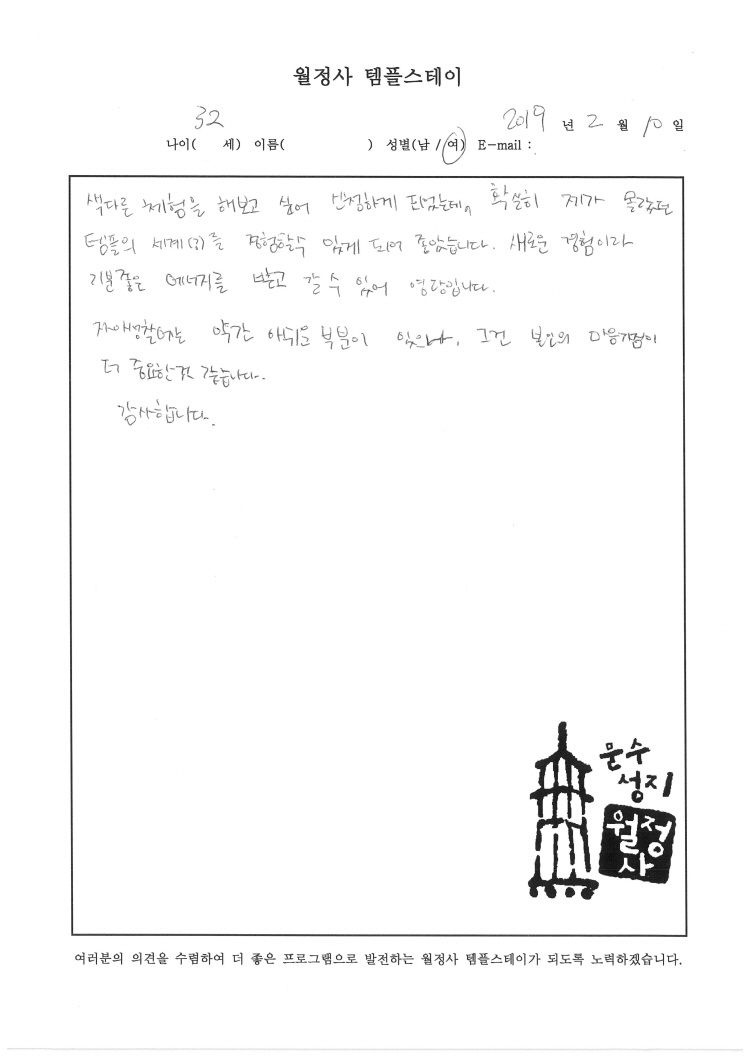 월정사 템플스테이
32 2019 년 2 월 10 일
나이( 세) 이름( ) 성별(남 / 여) E-mail :
색다른 체험을 해보고 싶어 신청하게 되었는데, 확실히 제가 몰랐던
템플의 세계(?)를 경험할수 있게 되어 좋았습니다. 새로운 경험이라
기분좋은 에너지를 받고 갈 수 있어 영광입니다.
약간 아쉬운 부분이 있으나, 그건 본인의 마음가짐이
더 중요한것 같습니다.
감사합니다.
문수
성지
월정
사
여러분의 의견을 수렴하여 더 좋은 프로그램으로 발전하는 월정사 템플스테이가 되도록 노력하겠습니다.